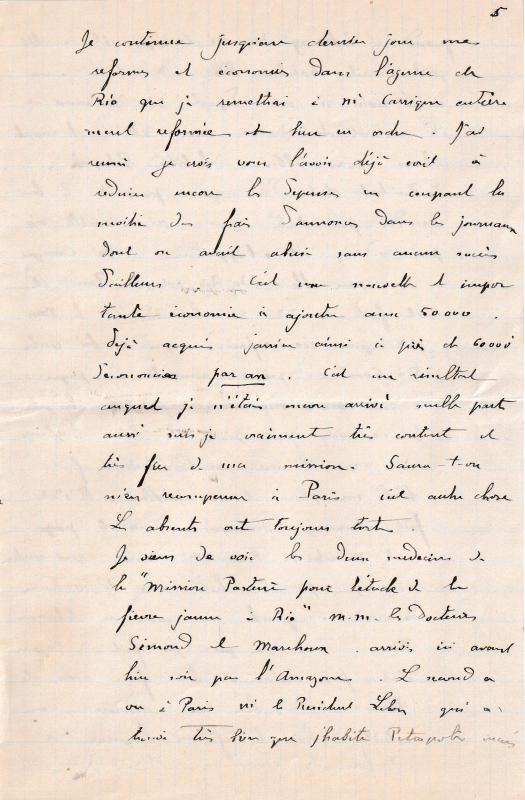 5
Je continue jusqu'au dernier jour mes
reformes et économies dans l'agence de
Rio que je remettrai à Mr Carrique entière
ment reformée et bien en ordre. J'ai
reussi je crois vous l'avoir déjà écrit à
reduire encore les Depenses en coupant la
moitié des frais D'annonces dans les journaux
dont on avait abusé sans aucun succès
D'ailleurs. C'est une nouvelle et impor
tante économie à ajouter aux 50000.
Déjà acquis j'arrive ainsi à près de 60000
D'economies par an. C'est un résultat
auquel je n'étais encore arrivé nulle part
aussi suis je vraiment très content et
très fier de ma mission. Saura-t-on
m'en recompenser à Paris c'est autre chose
Les absents ont toujours torts.
Je viens de voir les deux medecins de
la "Mission Pasteur pour l'étude de la
fievre jaune à Rio" M.M. les Docteurs
Simond et Marchoux. arrivés ici avant
hier soir par l'Amazone. Le second a
vu à Paris Mr le President Lebon qui a
trouvé très bien que j'habite Petropolis mais